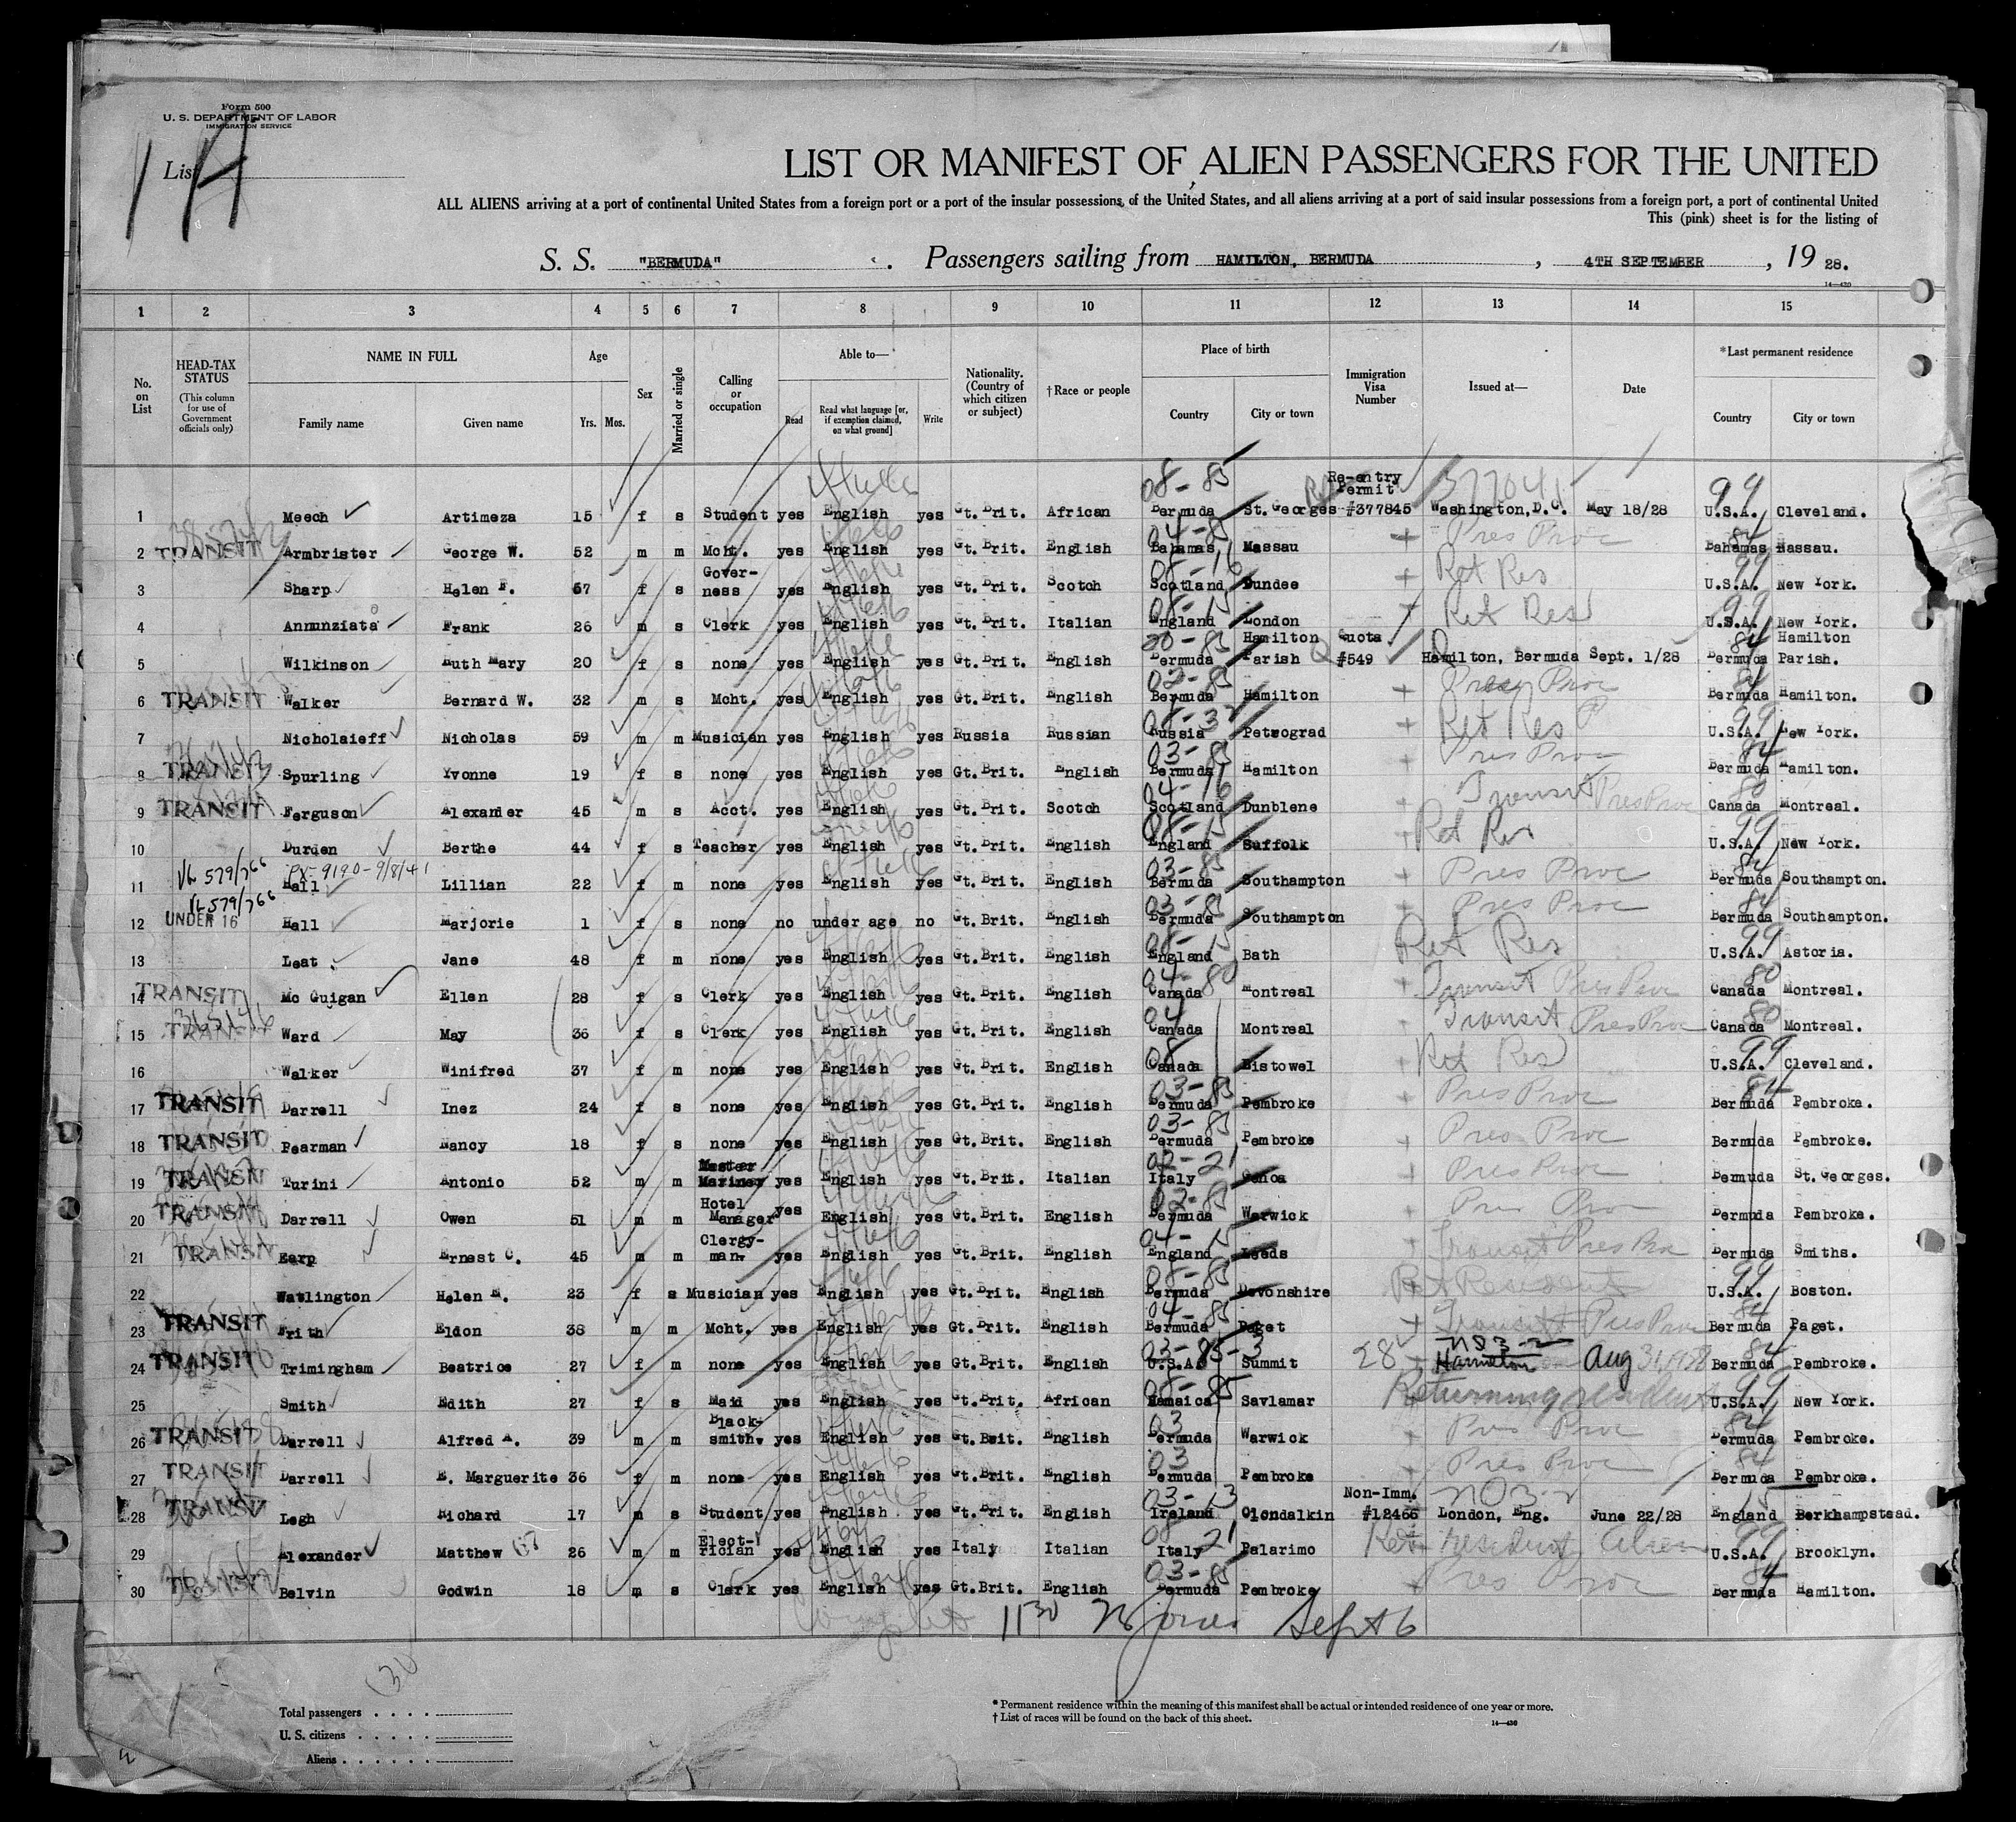 Form 500
U. S. DEPARTMENT OF LABOR
IMMIGRATION SERVICE
List 1 A
LIST OR MANIFEST OF ALIEN PASSENGERS FOR THE UNITED
ALL ALIENS arriving at a port of continental United States from a foreign port or a port of the insular possessions of the United States, and all aliens arriving at a port of said insular possessions from a foreign port, a port of continental United
This (pink) sheet is for the listing of
S. S. "BERMUDA" . Passengers sailing from HAMILTON, BERMUDA , 4TH SEPTEMBER , 19 28.
14—430
1 2 3 4 5 6 7 8 9 10 11 12 13 14 15
No. on List
HEAD-TAX STATUS
(This column for use of Government officials only)
NAME IN FULL
Family name Given name
Age
Yrs. Mos.
Sex
Married or single
Calling or occupation
Able to—
Read
Read what language [or, if exemption claimed, on what ground]
Write
Nationality. (Country of which citizen or subject)
† Race or people
Place of birth
Country City or town
Immigration Visa Number
Issued at—
Date
*Last permanent residence
Country City or town
08-85 Re-entry Permit 377041 99
1 Meech Artimeza 15 f s Student yes English yes Gt. Brit. African Bermuda St. Georges #377845 Washington, D.C. May 18/28 U.S.A. Cleveland.
04-85 Pres Proc 84
2 TRANSIT Armbrister George W. 52 m m Mcht. yes English yes Gt. Brit. English Bahamas Nassau Bahamas Nassau.
08-16 Ret Res 99
3 Sharp Helen F. 57 f s Governess yes English yes Gt. Brit. Scotch Scotland Dundee U.S.A. New York.
08-15 Ret Res 99
4 Annunziata Frank 26 m s Clerk yes English yes Gt. Brit. Italian England London U.S.A. New York.
20-85 Hamilton Quota 84 Hamilton
5 Wilkinson Ruth Mary 20 f s none yes English yes Gt. Brit. English Bermuda Parish #549 Hamilton, Bermuda Sept. 1/28 Bermuda Parish.
02-85 Pres Proc 84
6 TRANSIT Walker Bernard W. 32 m s Mcht. yes English yes Gt. Brit. English Bermuda Hamilton Bermuda Hamilton.
Ret Res 99
7 Nicholaieff Nicholas 59 m m Musician yes English yes Russia Russian Russia Petrograd U.S.A. New York.
03-85 Pres Proc 84
8 TRANSIT Spurling Yvonne 19 f s none yes English yes Gt. Brit. English Bermuda Hamilton Bermuda Hamilton.
04-16 Transit Pres Proc 80
9 TRANSIT Ferguson Alexander 45 m s Acct. yes English yes Gt. Brit. Scotch Scotland Dunblene Canada Montreal.
08-15 Ret Res 99
10 Durden Berthe 44 f s Teacher yes English yes Gt. Brit. English England Suffolk U.S.A. New York.
VL 579/766 PX-9190-9/8/41 03-85 Pres Proc 84
11 Hall Lillian 22 f m none yes English yes Gt. Brit. English Bermuda Southampton Bermuda Southampton.
VL 579/766 03-85 Pres Proc 84
12 UNDER 16 Hall Marjorie 1 f s none no under age no Gt. Brit. English Bermuda Southampton Bermuda Southampton.
08-15 Ret Res 99
13 Leat Jane 48 f m none yes English yes Gt. Brit. English England Bath U.S.A. Astoria.
04-80 Transit Pres Proc 80
14 TRANSIT Mc Guigan Ellen 28 f s Clerk yes English yes Gt. Brit. English Canada Montreal Canada Montreal.
04 Transit Pres Proc 80
15 TRANSIT Ward May 36 f s Clerk yes English yes Gt. Brit. English Canada Montreal Canada Montreal.
08 Ret Res 99
16 Walker Winifred 37 f m none yes English yes Gt. Brit. English Canada Bistowel U.S.A. Cleveland.
03-85 Pres Proc 84
17 TRANSIT Darrell Inez 24 f s none yes English yes Gt. Brit. English Bermuda Pembroke Bermuda Pembroke.
03-85 Pres Proc
18 TRANSIT Pearman Nancy 18 f s none yes English yes Gt. Brit. English Bermuda Pembroke Bermuda Pembroke.
02-21 Pres Proc
19 TRANSIT Turini Antonio 52 m m Master Mariner yes English yes Gt. Brit. Italian Italy Genoa Bermuda St. Georges.
02-85 Pres Proc
20 TRANSIT Darrell Owen 51 m m Hotel Manager yes English yes Gt. Brit. English Bermuda Warwick Bermuda Pembroke.
04-15 Transit Pres Proc
21 TRANSIT Earp Ernest C. 45 m m Clergyman yes English yes Gt. Brit. English England Leeds Bermuda Smiths.
08-85 Ret Resident 99
22 Watlington Helen M. 23 f s Musician yes English yes Gt. Brit. English Bermuda Devonshire U.S.A. Boston.
04-85 Transit Pres Proc 84
23 TRANSIT Frith Eldon 38 m m Mcht. yes English yes Gt. Brit. English Bermuda Paget Bermuda Paget.
03-85-3 28 NO 3-2 84
24 TRANSIT Trimingham Beatrice 27 f m none yes English yes Gt. Brit. English U.S.A. Summit Hamilton Aug 31, 1928 Bermuda Pembroke.
08-85 Returning resident 99
25 Smith Edith 27 f s Maid yes English yes Gt. Brit. African Jamaica Savlamar U.S.A. New York.
03 Pres Proc 84
26 TRANSIT Darrell Alfred A. 39 m m Blacksmith. yes English yes Gt. Brit. English Bermuda Warwick Bermuda Pembroke.
03 Pres Proc 84
27 TRANSIT Darrell E. Marguerite 36 f m none yes English yes Gt. Brit. English Bermuda Pembroke Bermuda Pembroke.
03-13 Non-Imm. NO 3-2 15
28 TRANSIT Legh Richard 17 m s Student yes English yes Gt. Brit. English Ireland Clondalkin #12466 London, Eng. June 22/28 England Berkhampstead.
08 21 Ret resident Alien 99
29 Alexander Matthew 26 m m Electrician yes English yes Italy Italian Italy Palarimo U.S.A. Brooklyn.
03-85 Pres Proc 84
30 TRANSIT Belvin Godwin 18 m s Clerk yes English yes Gt. Brit. English Bermuda Pembroke Bermuda Hamilton.
11 30 Jones Sept 6
(30
Total passengers . . . .
U. S. citizens . . . . .
Aliens . . . . . .
* Permanent residence within the meaning of this manifest shall be actual or intended residence of one year or more.
† List of races will be found on the back of this sheet.
14—430